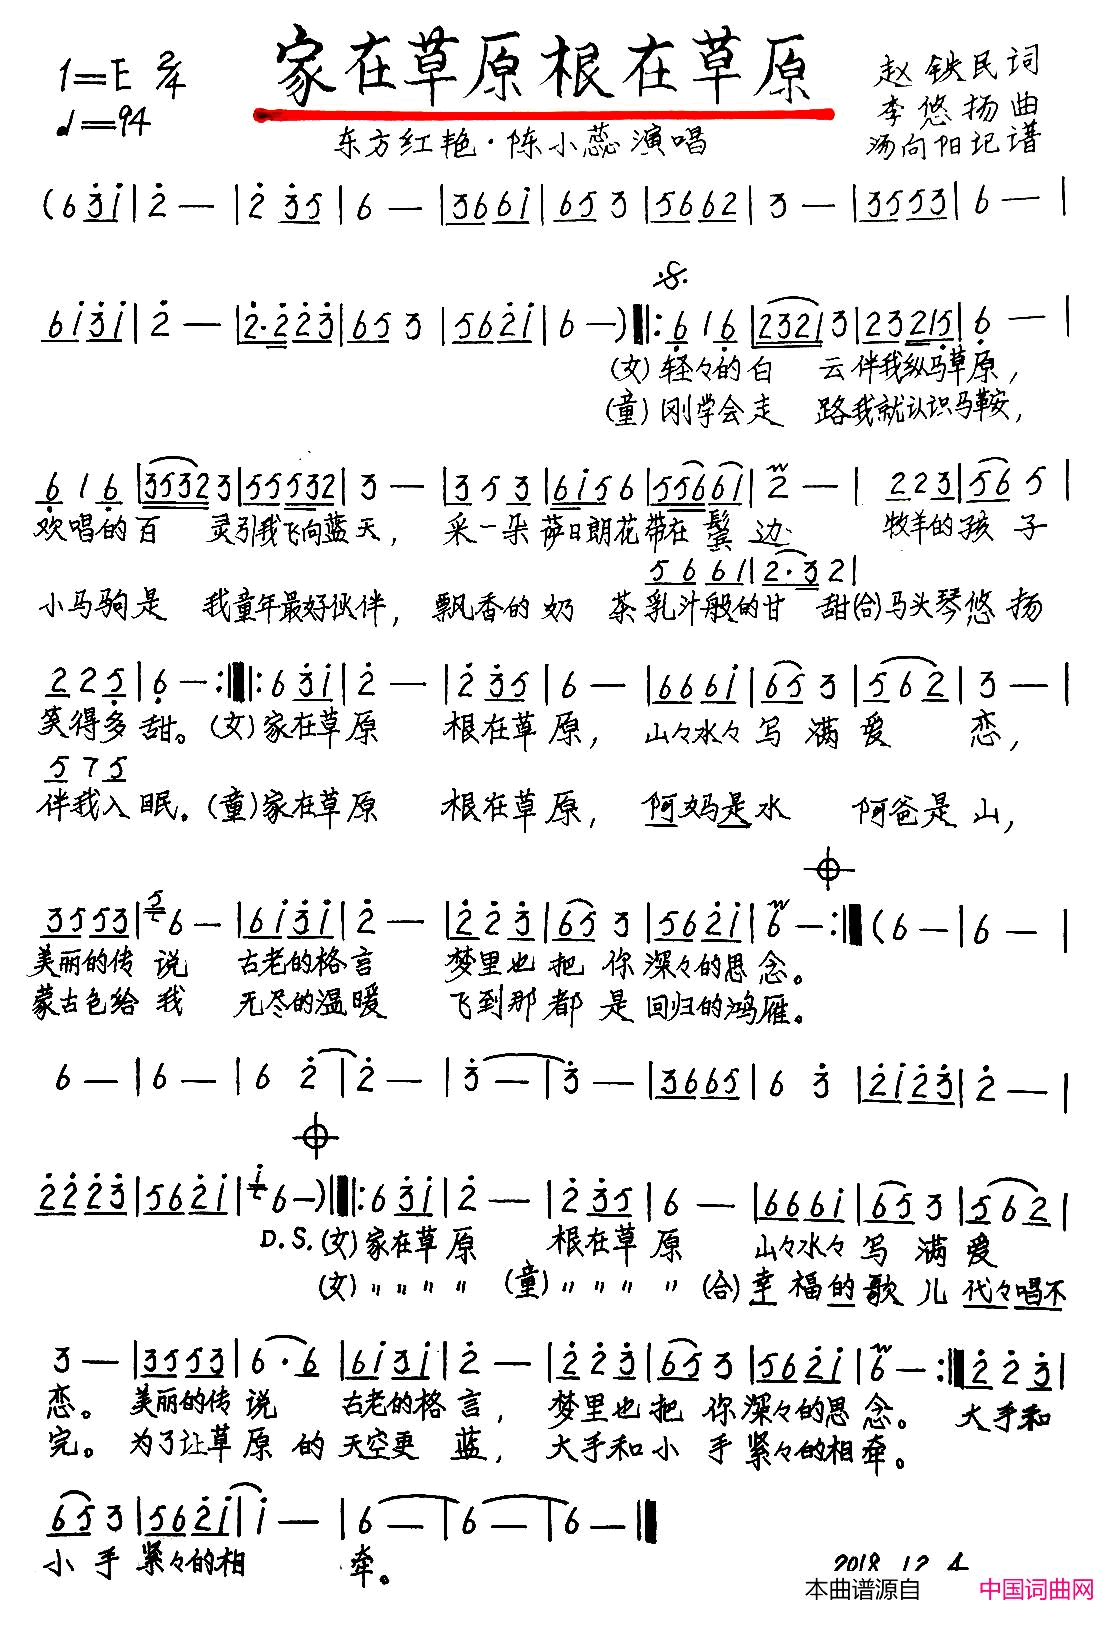 家在草原根在草原
1=E 2/4
♩=94
赵铁民词
李悠扬曲
汤向阳记谱
东方红艳·陈小蕊演唱
(6 3̇1̇|2̇ —|2̇ 3̇5|6 —|3661̇|65 3|5662|3 —|3553|6 —|
61̇3̇1̇|2̇ —|2̇·2̇2̇3̇|65 3|562̇1̇|6 —)‖:6̣ 1 6̣|2321 3|23215̣|6̣ —|
(女)轻々的白 云伴我纵马草原，
(童)刚学会走 路我就认识马鞍，
6̣ 1 6̣|3532 3|55532|3 —|3 5 3|61̇56|55661̇|2̇ —|223|56 5|
欢唱的百 灵引我飞向蓝天， 采一朵 萨日朗花带在 鬓 边 牧羊的孩 子
56 61̇|2·3 2|
小马驹是 我童年最好伙伴，飘香的奶 茶乳汁般的甘 甜(合)马头琴悠 扬
2 2 5̣|6̣ —:‖:6 3̇1̇|2̇ —|2̇ 3̇5|6 —|6661̇|65 3|562|3 —|
笑得多 甜。(女)家在草原 根在草原，山々水々写 满 爱 恋，
5 7 5
伴我入 眠。(童)家在草原 根在草原，阿妈是水 阿爸是 山，
3553|6 —|61̇3̇1̇|2̇ —|2̇2̇3̇|65 3|562̇1̇|6 —:‖(6 —|6 —|
美丽的传 说 古老的格言 梦里也 把 你 深々的思 念。
蒙古包给 我 无尽的温 暖 飞到那 都 是 回归的鸿 雁。
6 —|6 —|6 2̇|2̇ —|3̇ —|3̇ —|3665|6 3̇|2̇1̇2̇3̇|2̇ —|
2̇2̇2̇3̇|562̇1̇|6 —)‖:6 3̇1̇|2̇ —|2̇ 3̇5|6 —|6661̇|65 3|562|
D.S.(女)家在草 原 根在草 原 山々水々 写 满 爱
(女)〃〃〃〃 (童)〃〃〃〃 (合)幸 福的歌 儿 代々唱不
3 —|3553|6·6|61̇31̇|2̇ —|2̇2̇3̇|65 3|562̇1̇|6 —:‖2̇ 2̇ 3̇|
恋。 美丽的传 说 古老的格 言， 梦里也把 你深々的思 念。 大手和
完。 为了让草 原 的 天空更 蓝， 大手和小 手紧々的相牵。
65 3|562̇1̇|1̇ —|6 —|6 —|6 —‖
小 手 紧々的相 牵。
2018 12 4
本曲谱源自 中国词曲网